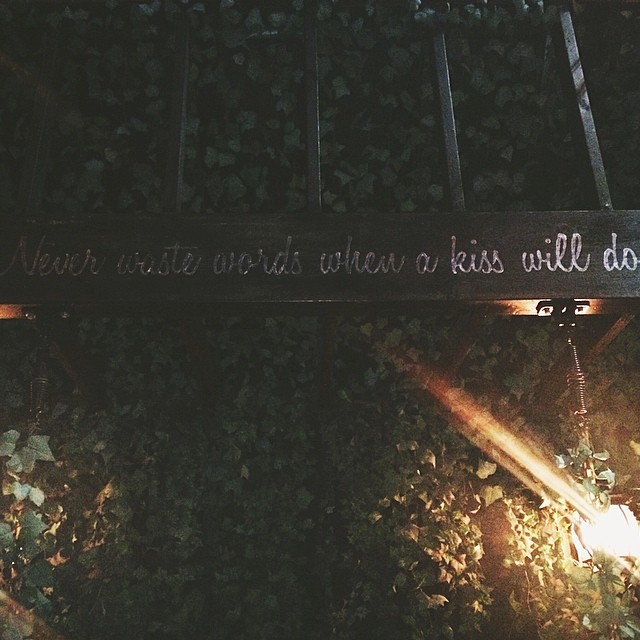 Never waste words when a kiss will do